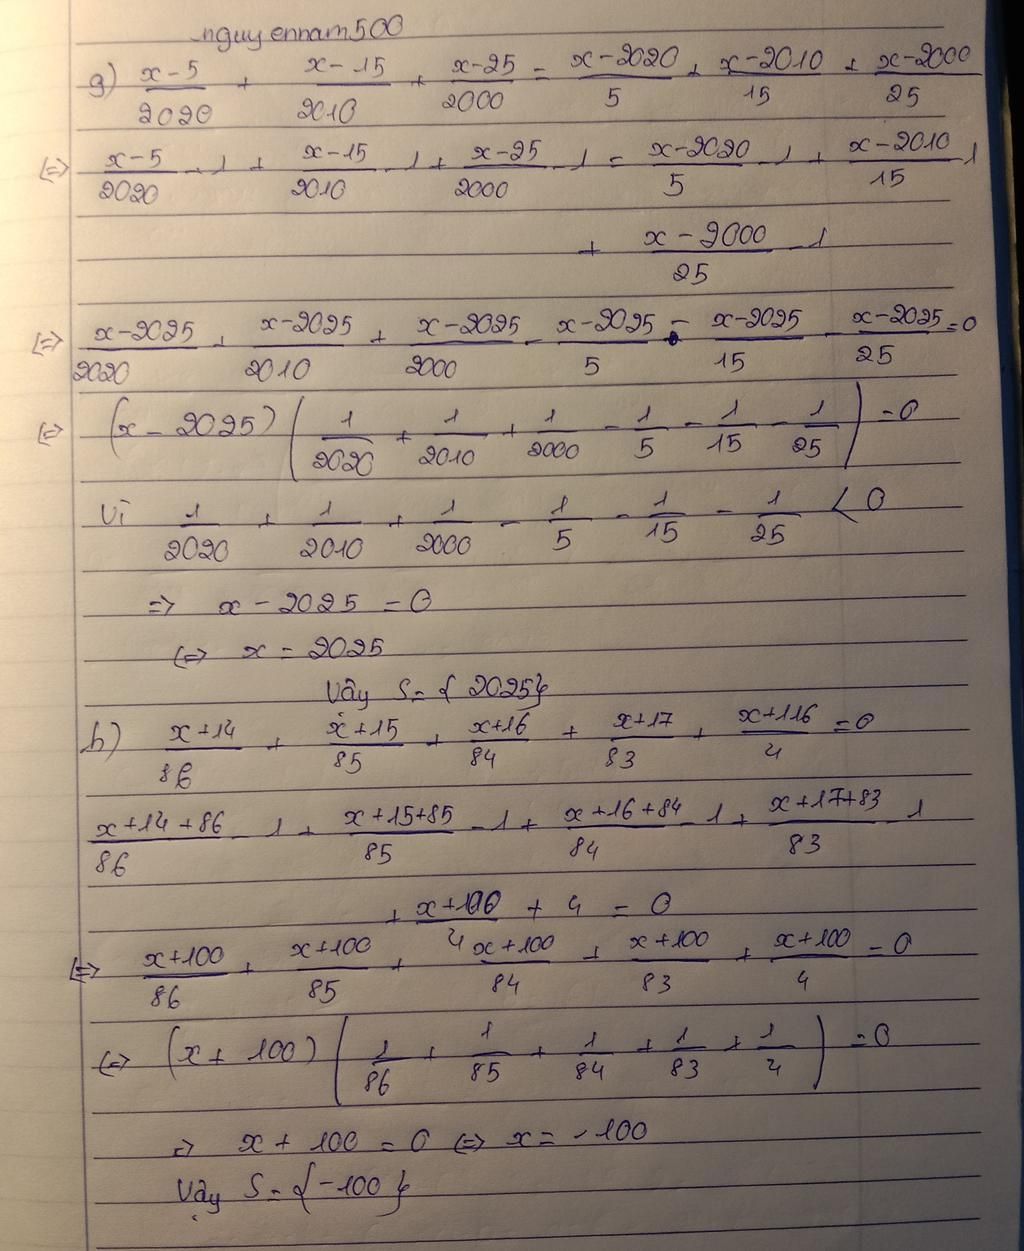 nguyennam500
g) \frac{x-5}{2020} + \frac{x-15}{2010} + \frac{x-25}{2000} = \frac{x-2020}{5} + \frac{x-2010}{15} + \frac{x-2000}{25}
(=> \frac{x-5}{2020} - 1 + \frac{x-15}{2010} - 1 + \frac{x-25}{2000} - 1 = \frac{x-2020}{5} - 1 + \frac{x-2010}{15} - 1
+ \frac{x-2000}{25} - 1
(=> \frac{x-2025}{2020} + \frac{x-2025}{2010} + \frac{x-2025}{2000} - \frac{x-2025}{5} - \frac{x-2025}{15} - \frac{x-2025}{25} = 0
(=> (x-2025) ( \frac{1}{2020} + \frac{1}{2010} + \frac{1}{2000} - \frac{1}{5} - \frac{1}{15} - \frac{1}{25} ) = 0
Vì \frac{1}{2020} + \frac{1}{2010} + \frac{1}{2000} - \frac{1}{5} - \frac{1}{15} - \frac{1}{25} < 0
=> x - 2025 = 0
(=> x = 2025
Vậy S = {2025}
h) \frac{x+14}{86} + \frac{x+15}{85} + \frac{x+16}{84} + \frac{x+17}{83} + \frac{x+116}{4} = 0
\frac{x+14+86}{86} - 1 + \frac{x+15+85}{85} - 1 + \frac{x+16+84}{84} - 1 + \frac{x+17+83}{83} - 1
+ \frac{x+100}{4} + 4 = 0
(=> \frac{x+100}{86} + \frac{x+100}{85} + \frac{x+100}{84} + \frac{x+100}{83} + \frac{x+100}{4} = 0
(=> (x+100) ( \frac{1}{86} + \frac{1}{85} + \frac{1}{84} + \frac{1}{83} + \frac{1}{4} ) = 0
=> x + 100 = 0 (=> x = -100
Vậy S = {-100}